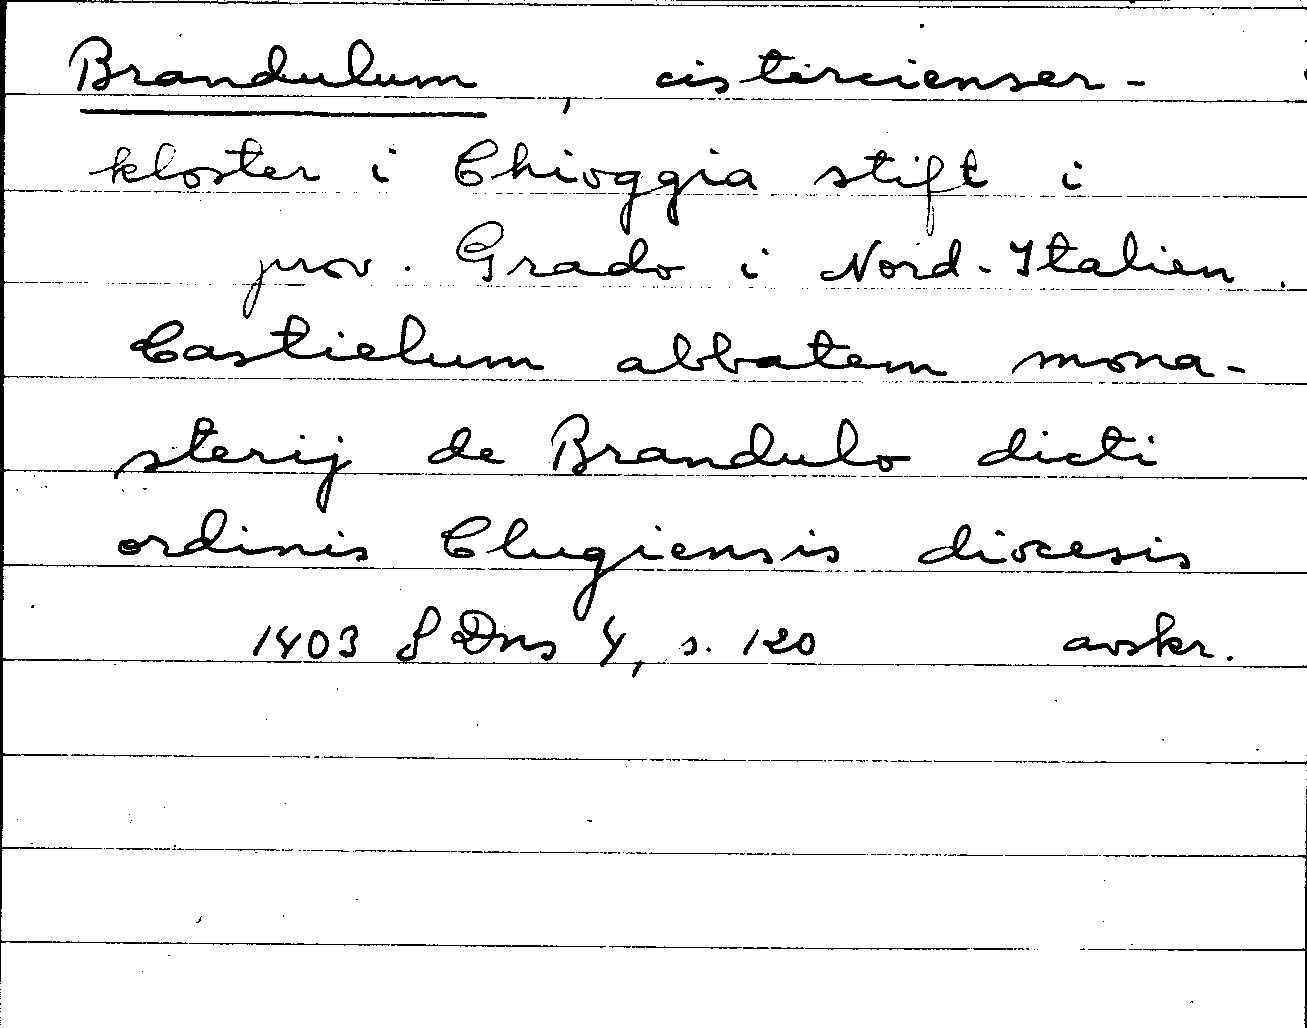 Brandulum, cistercienser-
kloster i Chioggia stift i
prov. Grado i Nord-Italien.
Castielum abbatem mona-
sterij de Brandulo dicti
ordinis Clugiensis diocesis
1403 SDns 4, s. 120 avskr.